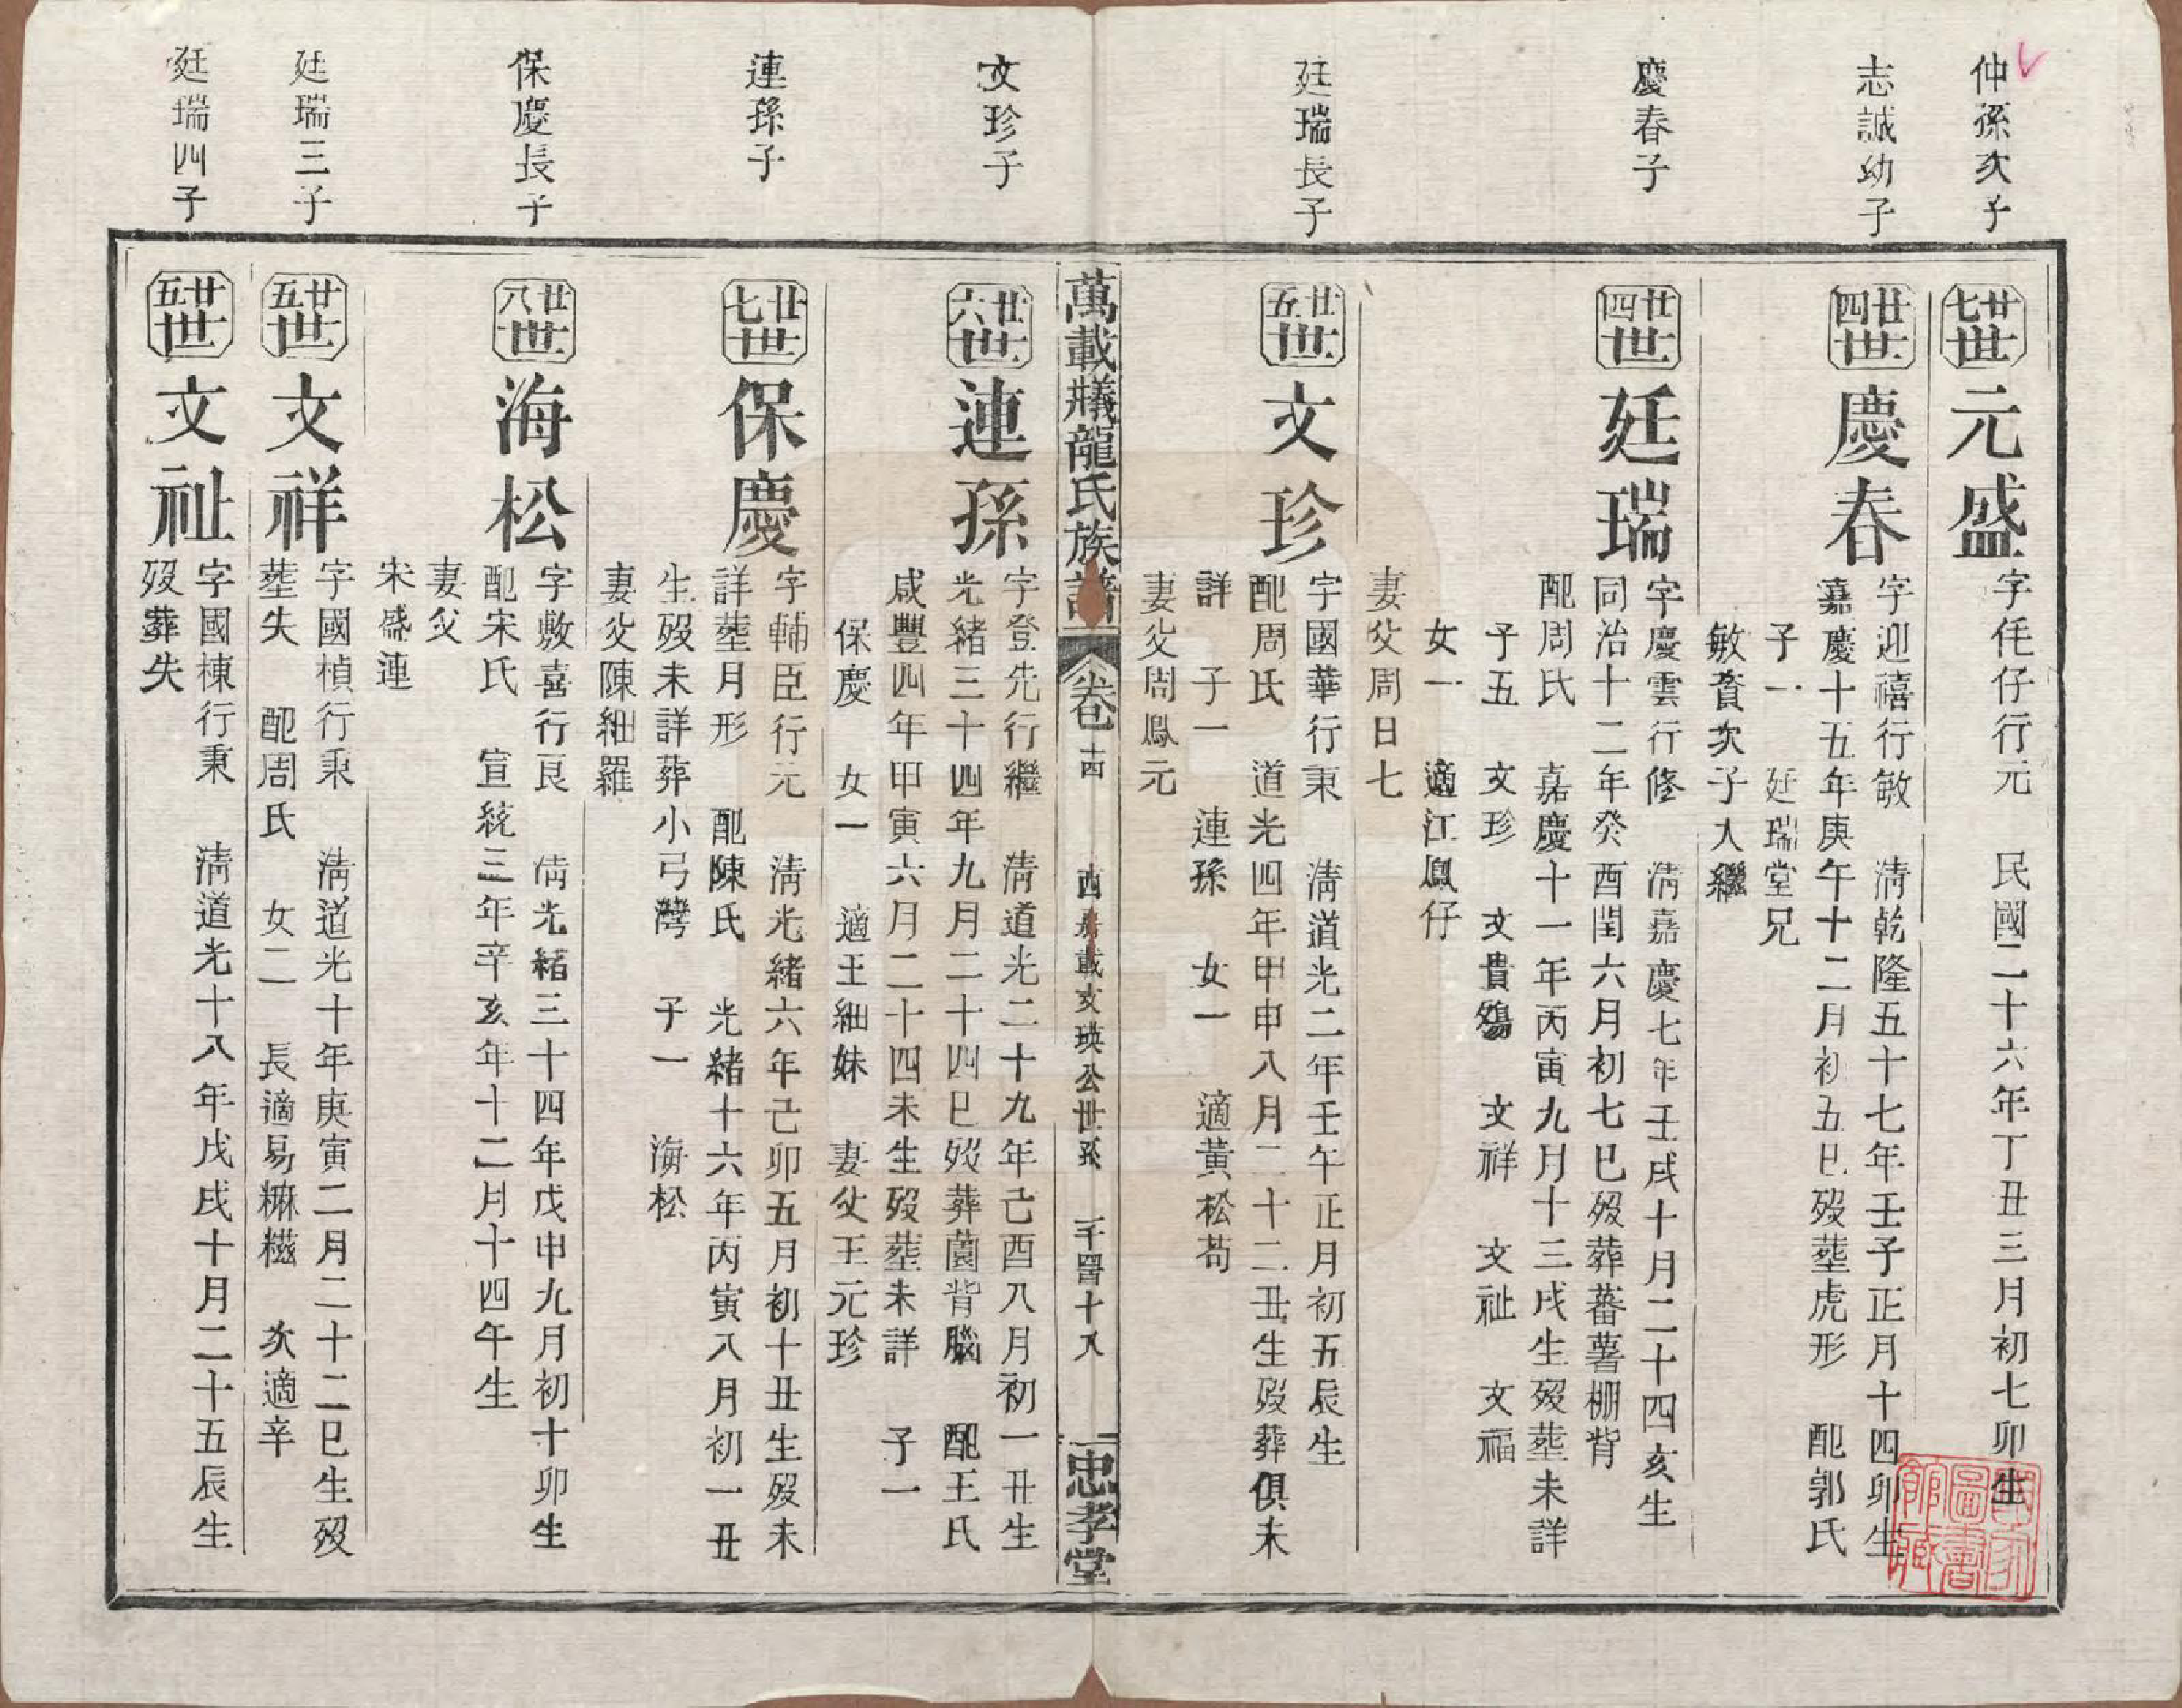 仲孫次子
廿七世
元盛
字仛仔行元 民國二十六年丁丑三月初七卯生
志誠幼子
廿四世
慶春
字迎禧行敏 淸乾隆五十七年壬子正月十四卯生
嘉慶十五年庚午十二月初五巳歿塟虎形 配郭氏
子一 廷瑞堂兄
敏賚次子入繼
慶春子
廿四世
廷瑞
字慶雲行修 淸嘉慶七年壬戌十月二十四亥生
同治十二年癸酉閏六月初七巳歿葬蕃薯棚背
配周氏 嘉慶十一年丙寅九月十三戌生歿塟未詳
子五 文珍 文貴殤 文祥 文祉 文福
女一 適江鳳仔
妻父周日七
廷瑞長子
廿五世
文珍
字國華行秉 淸道光二年壬午正月初五辰生
配周氏 道光四年甲申八月二十二丑生歿葬俱未
詳 子一 連孫 女一 適黃松苟
妻父周鳳元
萬載㸁龍氏族譜
卷十四
世孫
忠孝堂
文珍子
廿六世
連孫
字登先行繼 淸道光二十九年己酉八月初一丑生
光緒三十四年九月二十四巳歿葬薗背腦 配王氏
咸豐四年甲寅六月二十四未生歿塟未詳 子一
保慶 女一 適王細妹 妻父王元珍
連孫子
廿七世
保慶
字輔臣行元 淸光緒六年己卯五月初十丑生歿未
詳塟月形 配陳氏 光緒十六年丙寅八月初一丑
生歿未詳葬小弓灣 子一 海松
妻父陳細羅
保慶長子
廿八世
海松
字敷喜行良 淸光緒三十四年戊申九月初十卯生
配宋氏 宣統三年辛亥年十二月十四午生
妻父
宋盛連
廷瑞三子
廿五世
文祥
字國楨行秉 淸道光十年庚寅二月二十二巳生歿
塟失 配周氏 女二 長適易㾮糍 次適辛
廷瑞四子
廿五世
文祉
字國棟行秉 淸道光十八年戊戌十月二十五辰生
歿葬失